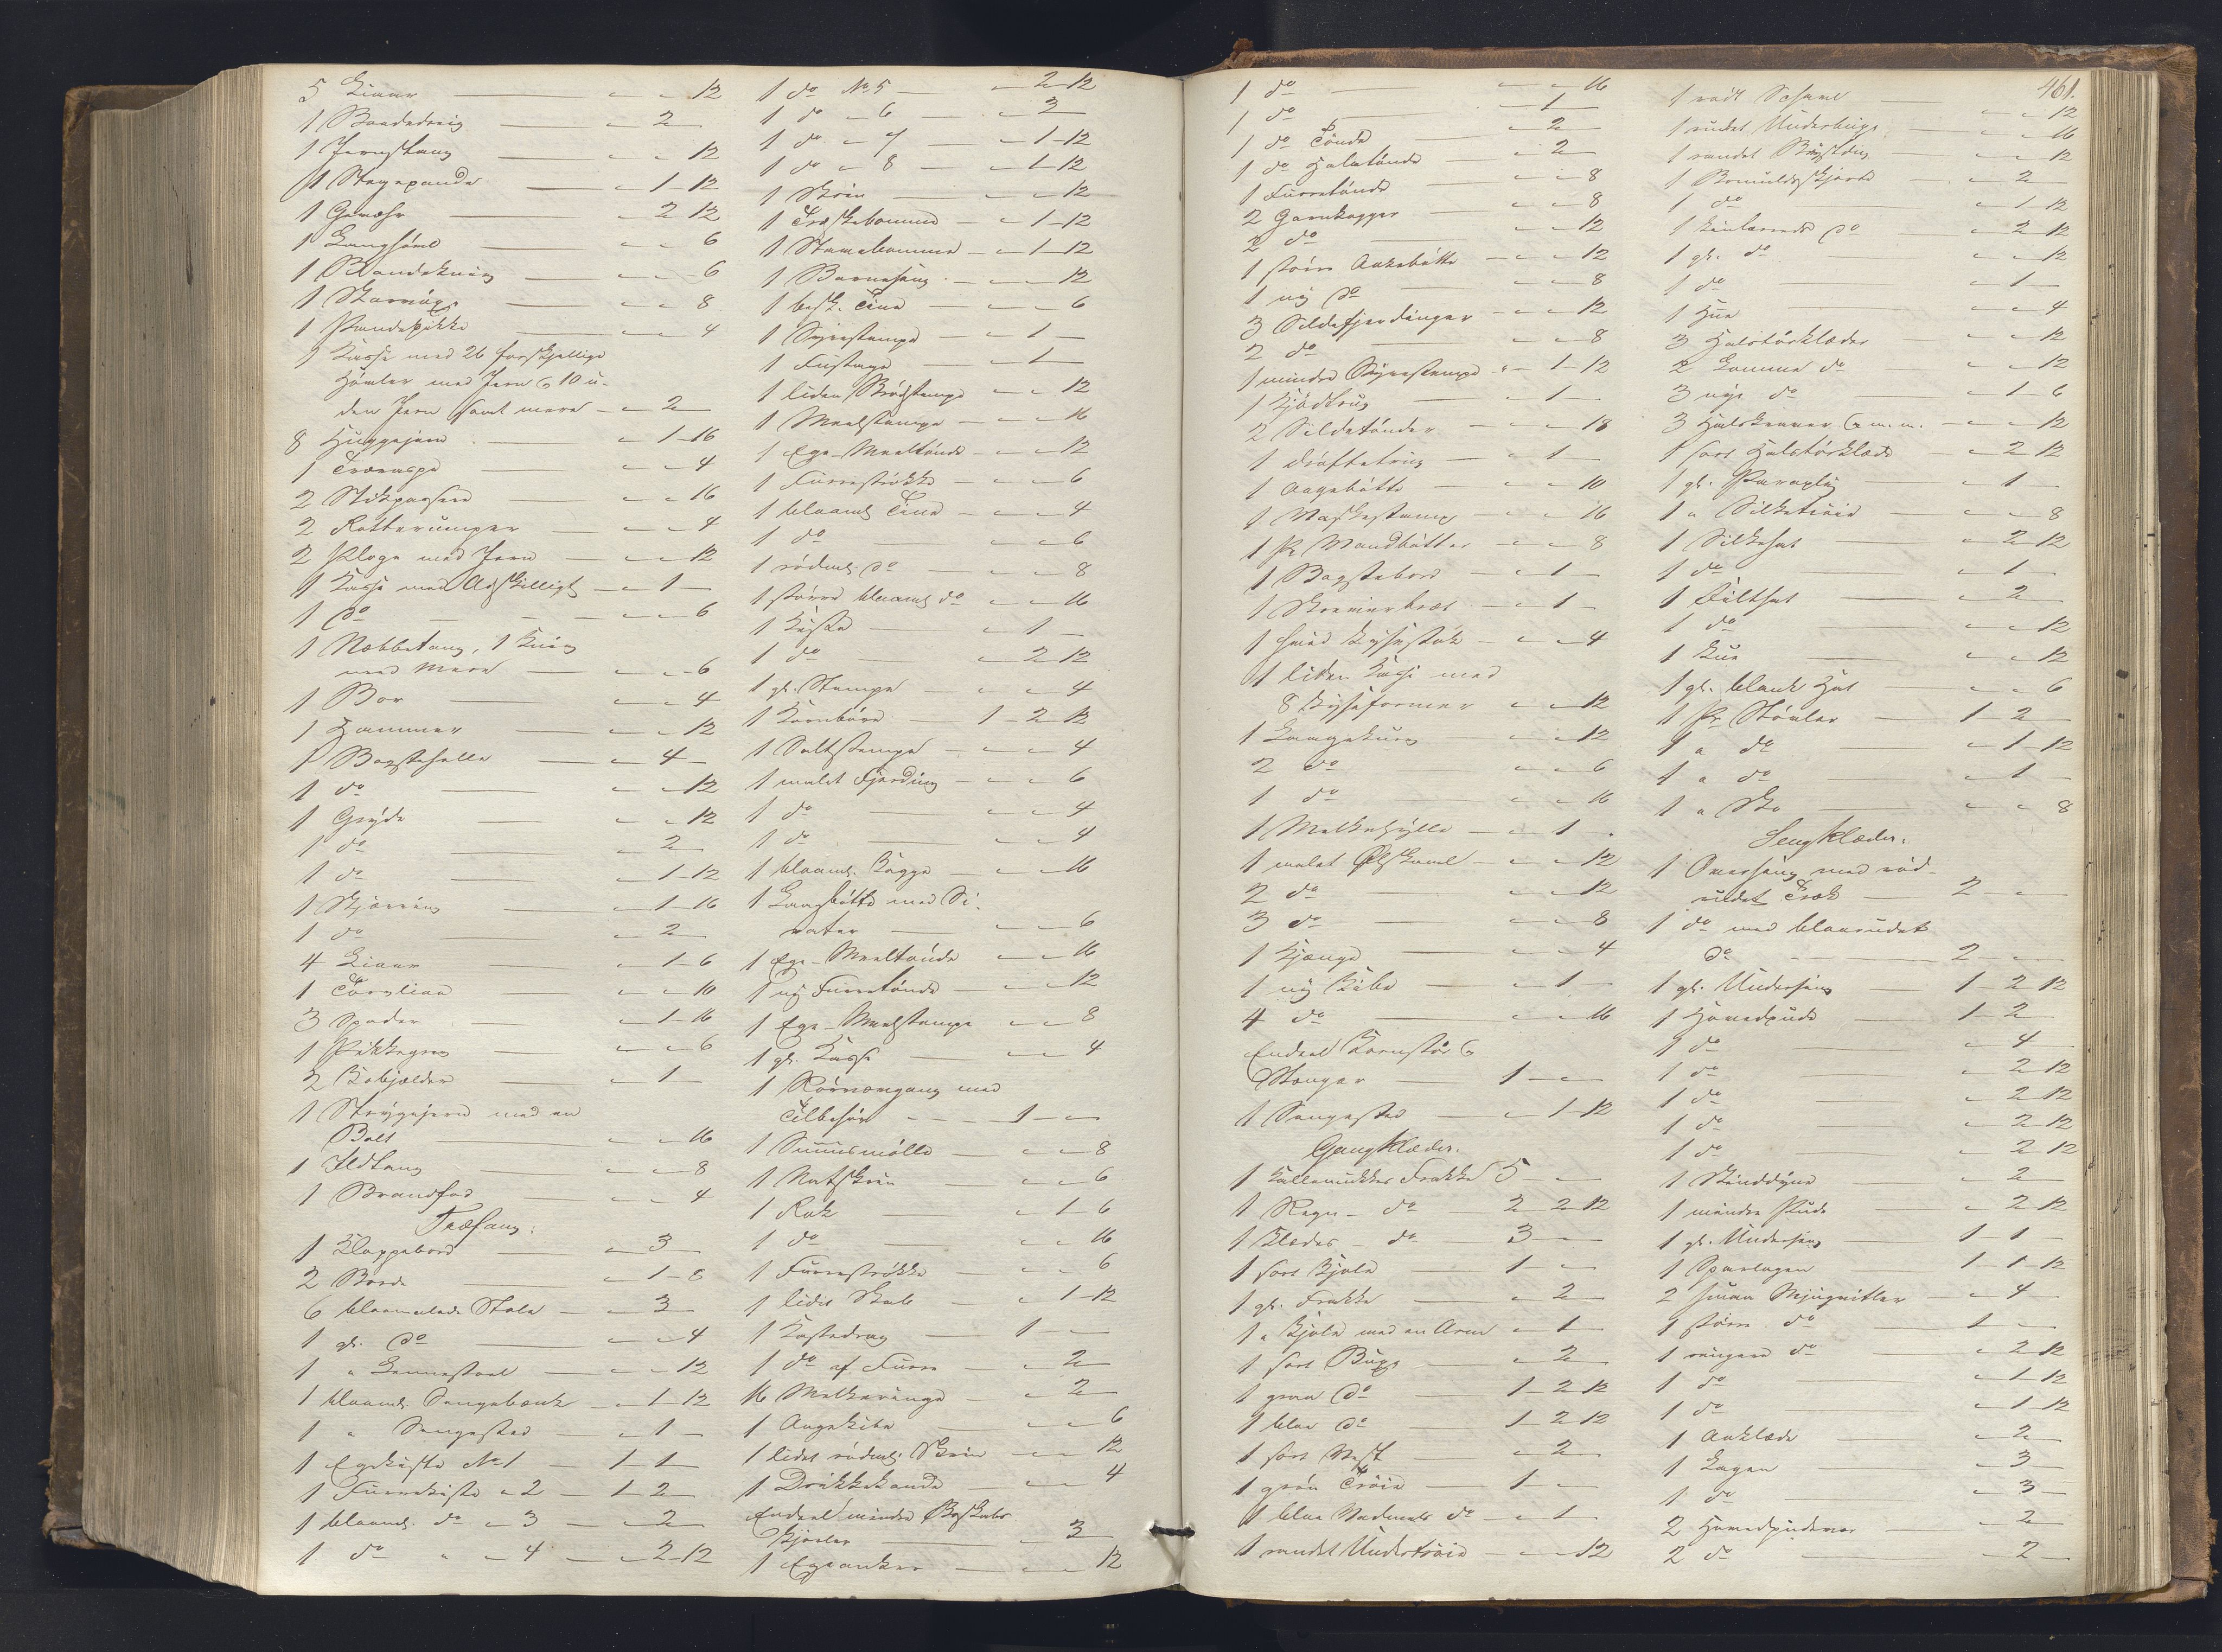 5 Liaar — " " 12
1 Baadedreg — " 2 "
1 Jernstang — " " 12
1 Stegepande — " 1 - 12
1 Gevæhr — " 2 12
1 Langhøvl — " " 6
1 Baandekniv — " " 6
1 Skarøxe — " " 8
1 Pandepikke — " " 4
1 Kasse med 26 forskjellige
Høvler med Jern & 10 u-
den Jern samt mere — " 2 —
8 Huggejern — " 1 - 16
1 Tværaxe — " " 4
2 Stikpassere — " " 16
2 Rotterumper — " " 4
2 Ploge med Jern — " " 12
1 Kasse med Adskilligt — " 1 —
1 do — " " 6
1 Næbbetang, 1 Kniv
med Mere — " " 6
1 Bor — " " 4
1 Hammer — " " 12
1 Bagstehelle — " 4 —
1 do — " " 12
1 Gryde — " " 12
1 do — " 2 —
1 do — " 1 - 12
1 Skjæring — " 1 - 16
1 do — " 2 —
4 Liaar — " 1 - 6
1 Torvliaa — " " 10
3 Spader — " 1 - 16
1 Pikkegrev — " " 6
2 Kobjælder — " 1 —
1 Strygejern med en
Bolt — " " 16
1 Ildtang — " " 8
1 Brandfod — " " 4
Træfang:
1 Klappebord — " 3 —
2 Borde — " 1 - 8
6 blaamalede Stole — " 3 —
1 gl. do — " " 4
1 " Lænnestoel — " " 12
1 blaaml. Sengebænk — " 1 - 12
1 " Sengested — " 1 —
1 Egekiste No 1 — 1 - 1 —
1 Furrekiste " 2 — 1 - 2 —
1 blaaml. do " 3 — " 2 —
1 do " " 4 — " 2 - 12
1 do No 5 — " 2 - 12
1 do " 6 — " 3 —
1 do " 7 — " 1 - 12
1 do " 8 — " 1 - 12
1 Skrin — " " 12
1 Træskebomme — " 1 - 12
1 Stavebomme — " 1 - 12
1 Barneseng — " " 12
1 besk. Tine — " " 6
1 Syrestampe — " 1 —
1 Fustage — " 1 —
1 liden Brødstampe — " " 12
1 Meelstampe — " " 16
1 Ege-Meeltønde — " " 12
1 Furrestrøkke — " " 6
1 blaaml. Tine — " " 4
1 do — " " 6
1 rødml. do — " " 8
1 større blaaml. do — " " 16
1 Kiste — " 1 —
1 do — " 2 12
1 gl. Stampe — " " 4
1 Kornbøre — 1 - 2 - 12
1 Saltstampe — " " 4
1 malet Fjerding — " " 6
1 do — " " 4
1 do — " " 4
1 blaaml. Kagge — " " 16
1 Langbøtte med Si-
rater — " " 6
1 Ege-Meeltønde — " " 16
1 ny Furretønde — " " 12
1 Ege-Meelstampe — " " 8
1 gl. Kasse — " " 4
1 Rørværgang med
Tilbehør — 1 - "
1 Sennepsmølle — " " 8
1 Matskrin — " " 6
1 Rok — " 1 - 6
1 do — " " 16
1 Furrestrøkke — " " 6
1 lidet Skab — " 1 - 12
1 Kastedrag — 1 —
1 do af Furre — " 2 —
16 Melkeringe — " 2 —
1 Angekibe — " " 6
1 lidet rødml. Skrin — " " 12
1 Drikkekande — " " 4
Endeel mindre Boskabs
Kjørler — " 3 —
1 Egeanker — " " 12
461.
1 do — " " 16
1 do — " 1 —
1 do Tønde — " 2 —
1 do Halvtønde — " 2 —
1 Furretønde — " " 8
2 Garnkagger — " " 8
2 do — " " 12
1 større Ankebøtte — " " 12
1 ny do — " " 8
3 Sildefjerdinger — " " 12
2 do — " " 8
1 mindre Syrestampe — " 1 - 12
1 Kjødtrug — " 1 —
2 Sildetønder — " " 18
1 Drøftetrug — " 1 —
1 Aagebøtte — " " 10
1 Vaskestamp — " " 16
1 Pr Vandbøtter — " " 8
1 Bagstebord — " 1 —
1 Skomiverbræt — " 1 —
1 hvid Lysestok — " " 4
1 liden Kasse med
8 Lyseformer — " " 12
1 Laagekurv — " " 12
2 do — " " 6
1 do — " " 16
1 Melkehylle — " 1 —
1 malet Ølskaael — " " 12
2 do — " " 12
3 do — " " 8
1 Kjænge — " " 4
1 ny Kibe — " 1 —
4 do — " " 16
Endeel Kornstør &
Stænger — 1 - "
1 Sengested — " 1 - 12
Gangklæder.
1 Kallemukkes Frakke 5 - "
1 Regn - do — 2 - 2 - 12
1 Klædes - do — 3 —
1 sort Kjole — 1 - "
1 gl. Frakke — " 2 —
1 " Kjole med en Arm — " 1 —
1 sort Buxe — " 2 —
1 graa do — 1 - 2 - 12
1 blaa do — 1 - 2 12
1 sort Vest — " 2 —
1 grøn Trøie — 1 —
1 blaa Vadmels do — " 1 —
1 randet Undertrøie — " " 12
1 rødt Schavl — " " 12
1 rudet Underbuxe — " " 16
1 randet Brystdug — " " 12
1 Bomuldsskjorte — " 2 —
1 do — " 1 - 12
1 linlærreds do — " 2 12
1 gl. do — " " 12
1 do — " 1 —
1 Hue — " " 4
3 Halstørklæder — " " 12
2 Lomme do — " " 12
3 nye do — " 1 6
3 Halskraver & m. m. — " " 12
1 sort Halstørklæde — " 2 12
1 gl. Paraply — " 1 —
1 " Silketrøie — " " 8
1 Silkehat — " 2 12
1 do — " 1 —
1 Filthat — " 2 —
1 do — " " 12
1 Hue — " " 12
1 gl. blank Hat — " " 6
1 Pr Støvler — 1 - 2 —
1 " do — " 1 - 12
1 " do — " 1 —
1 " Sko — " " 8
Sengklæder.
1 Overseng med rød-
rudet Træk — 2 - "
1 do med blaarudet
do — 2 —
1 gl. Underseng — 1 - 2 12
1 Hovedpude — 1 - 2 —
1 do — " 4 —
1 do — " 2 12
1 do — " 2 12
1 do — " 2 12
1 do — " 2 12
1 Skinddyne — " 2 —
1 mindre Pude — " 2 12
1 gl. Underseng — 1 1 —
1 Sparlagen — 1 - 1 - 12
2 smaa Mjugvitler — " 4 —
1 større do — 1 - "
1 ringere do — " 2 12
1 do — " 1 - 12
1 do — " 1 - 12
1 Aaklæde — " 2 —
1 Lagen — " 3 —
1 do — " 3 —
2 Hovedpudevar — " 2 —
2 do — " 2 —